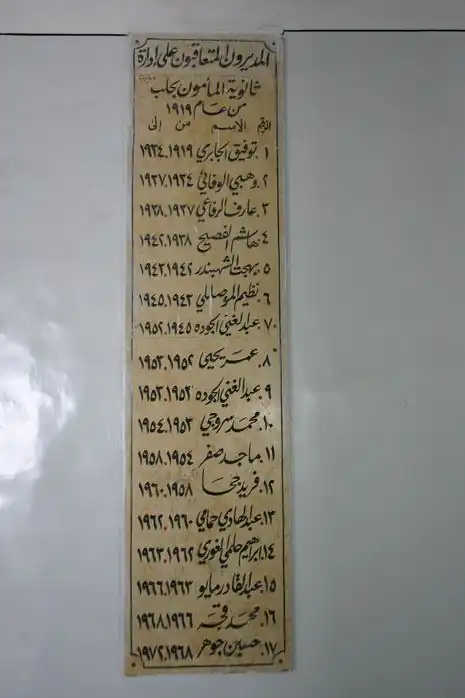 المديرون المتعاقبون على إدارة
ثانوية المأمون بحلب
من عام ١٩١٩
الرقم الاسم من إلى
١. توفيق الجابري ١٩١٩ ١٩٢٤
٢. وهبي الوفائي ١٩٢٤ ١٩٢٧
٣. عارف الرفاعي ١٩٢٧ ١٩٣٨
٤. هاشم الفصيح ١٩٣٨ ١٩٤٢
٥. بهجت الشهبندر ١٩٤٢ ١٩٤٣
٦. نظيم الموصللي ١٩٤٣ ١٩٤٥
٧. عبد الغني الجوده ١٩٤٥ ١٩٥٢
٨. عمر يحيى ١٩٥٢ ١٩٥٣
٩. عبد الغني الجوده ١٩٥٣ ١٩٥٣
١٠. محمد سروجي ١٩٥٣ ١٩٥٤
١١. ماجد صقر ١٩٥٤ ١٩٥٨
١٢. فريد جحا ١٩٥٨ ١٩٦٠
١٣. عبد الهادي حمامي ١٩٦٠ ١٩٦٢
١٤. ابراهيم حلمي الغوري ١٩٦٢ ١٩٦٣
١٥. عبد القادر مايو ١٩٦٣ ١٩٦٦
١٦. محمد قجة ١٩٦٦ ١٩٦٨
١٧. حسين جوهر ١٩٦٨ ١٩٧٢